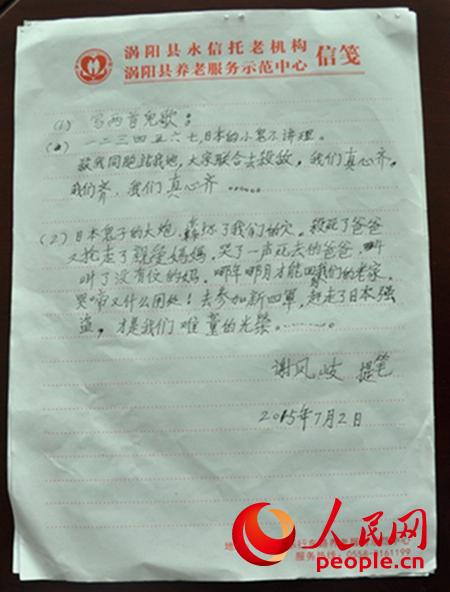 涡阳县永信托老机构
涡阳县养老服务示范中心 信笺
(1) 写两首儿歌:
(1) 一二三四五六七,日本的小鬼不讲理。
杀我同胞占我地,大家联合去杀敌,我们真心齐,
我们齐,我们真心齐……
(2) 日本鬼子的大炮,轰坏了我们的穴。杀死了爸爸
又抢走了亲爱妈妈,哭了一声死去的爸爸,叫
叫了没有位的妈,哪年哪月才能回我们的老家。
哭啼又什么用处!去参加新四军,赶走了日本强
盗,才是我们难童的光荣。……。
谢凤岐 提笔
2015年7月2日
人民网
people.cn
服务热线:0558-8161199